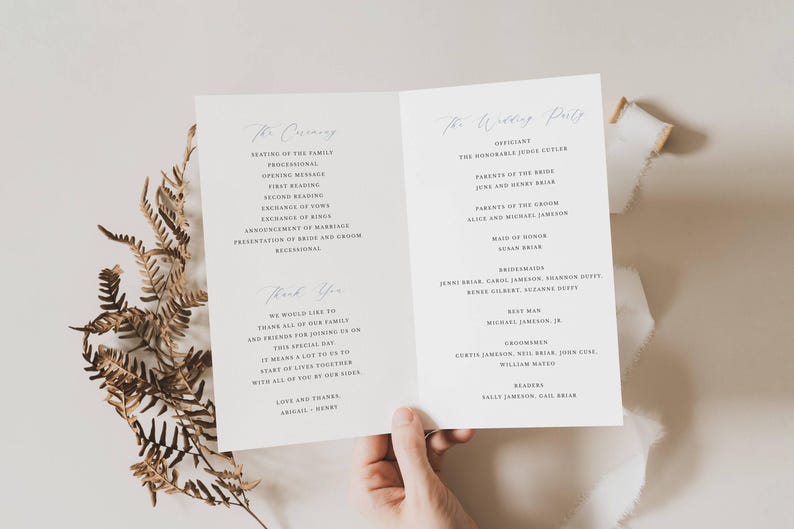 The Ceremony
SEATING OF THE FAMILY
PROCESSIONAL
OPENING MESSAGE
FIRST READING
SECOND READING
EXCHANGE OF VOWS
EXCHANGE OF RINGS
ANNOUNCEMENT OF MARRIAGE
PRESENTATION OF BRIDE AND GROOM
RECESSIONAL
Thank You
WE WOULD LIKE TO
THANK ALL OF OUR FAMILY
AND FRIENDS FOR JOINING US ON
THIS SPECIAL DAY.
IT MEANS A LOT TO US TO
START OF LIVES TOGETHER
WITH ALL OF YOU BY OUR SIDES.
LOVE AND THANKS,
ABIGAIL + HENRY
The Wedding Party
OFFICIANT
THE HONORABLE JUDGE CUTLER
PARENTS OF THE BRIDE
JUNE AND HENRY BRIAR
PARENTS OF THE GROOM
ALICE AND MICHAEL JAMESON
MAID OF HONOR
SUSAN BRIAR
BRIDESMAIDS
JENNI BRIAR, CAROL JAMESON, SHANNON DUFFY,
RENEE GILBERT, SUZANNE DUFFY
BEST MAN
MICHAEL JAMESON, JR.
GROOMSMEN
CURTIS JAMESON, NEIL BRIAR, JOHN CUSE,
WILLIAM MATEO
READERS
SALLY JAMESON, GAIL BRIAR